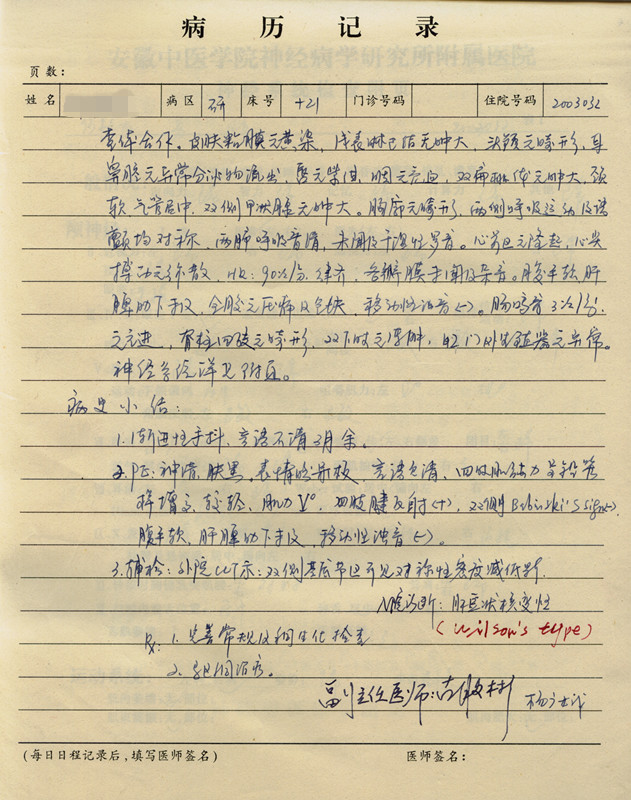 病历记录
页数：
姓名 病区 研 床号 +21 门诊号码 住院号码 2003032
查体合作。皮肤粘膜无黄染，浅表淋巴结无肿大，头颅无畸形，耳
鼻腔无异常分泌物流出，唇无紫绀，咽无充血，双扁桃体无肿大，颈
软，气管居中，双侧甲状腺无肿大。胸廓无畸形，两侧呼吸运动及语
颤均对称，两肺呼吸音清，未闻及干湿性罗音。心前区无隆起，心尖
搏动无弥散，HR：90次/分，律齐，各瓣膜未闻及杂音。腹平软，肝
脾肋下未及，全腹无压痛及包块，移动性浊音(-)。肠鸣音3次/分，
无亢进，脊柱四肢无畸形，双下肢无浮肿，肛门外生殖器无异常。
神经系统详见附页。
病史小结：
1. 渐进性手抖、言语不清3月余。
2. PE：神清，肤黑，表情呆板，言语欠清，四肢肌张力呈铅管
样增高，肌力V°，四肢腱反射(+)，双侧Babinski's sign(-)，
腹平软，肝脾肋下未及，移动性浊音(-)。
3. 辅检：外院CT示：双侧基底节区可见对称性密度减低影。
诊断：肝豆状核变性
(Wilson's type)
Rx：1. 完善常规及相关生化检查
2. 驱铜治疗。
副主任医师：
(每日日程记录后，填写医师签名) 医师签名：